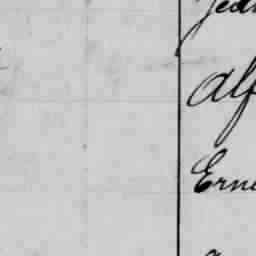 Jea
Alf
Erne